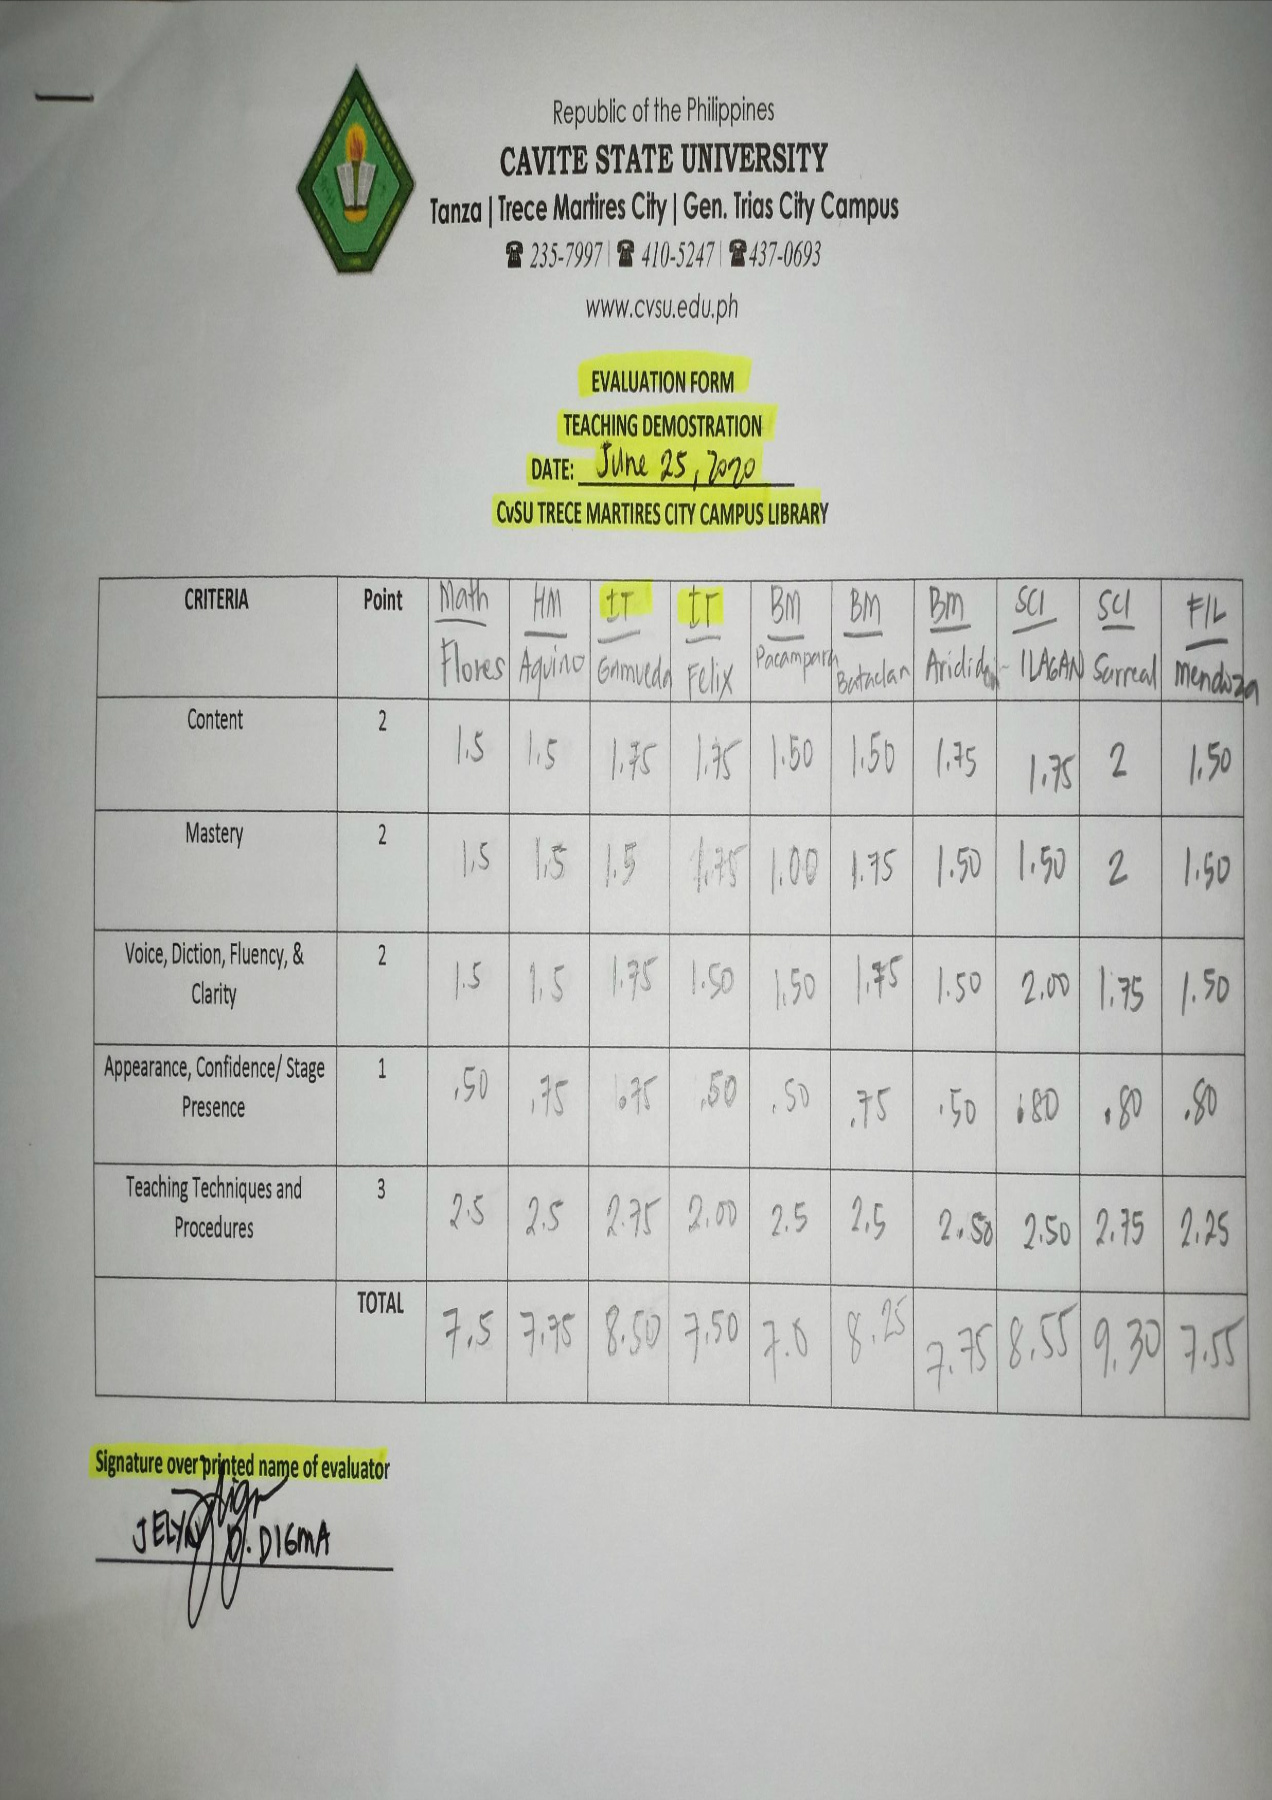 Republic of the Philippines
CAVITE STATE UNIVERSITY
Tanza | Trece Martires City | Gen. Trias City Campus
☎ 235-7997 | ☎ 410-5247 | ☎437-0693
www.cvsu.edu.ph
EVALUATION FORM
TEACHING DEMOSTRATION
DATE: June 25, 2020
CvSU TRECE MARTIRES CITY CAMPUS LIBRARY
CRITERIA Point Math HM IT IT BM BM BM SCI SCI F/L
Flores Aquino Felix Bataclan ILAGAN Surreal Mendoza
Content 2 1.5 1.5 1.75 1.75 1.50 1.50 1.75 1.75 2 1.50
Mastery 2 1.5 1.5 1.5 1.75 1.00 1.75 1.50 1.50 2 1.50
Voice, Diction, Fluency, & 2 1.5 1.5 1.75 1.50 1.50 1.75 1.50 2.00 1.75 1.50
Clarity
Appearance, Confidence/ Stage 1 .50 .75 .75 .50 .50 .75 .50 .80 .80 .80
Presence
Teaching Techniques and 3 2.5 2.5 2.75 2.00 2.5 2.5 2.50 2.50 2.75 2.25
Procedures
TOTAL 7.5 7.75 8.50 7.50 7.0 8.25 7.75 8.55 9.30 7.55
Signature over printed name of evaluator
D. DIGMA